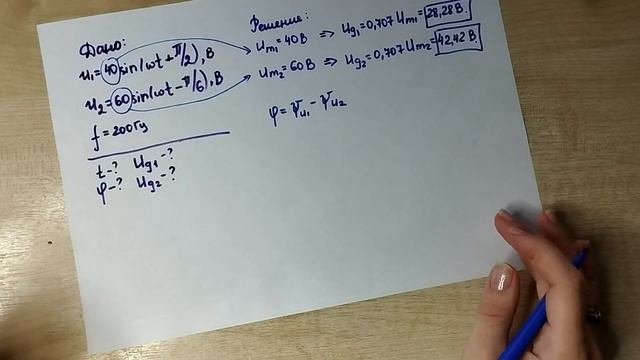 Дано:
u₁=40sin(ωt+π/2), В
u₂=60sin(ωt-π/6), В
f=200Гц
t-? Uд1-?
φ-? Uд2-?
Решение:
Um1=40В => Uд1=0,707Um1=28,28В.
Um2=60В => Uд2=0,707Um2=42,42В
φ=Ψu1-Ψu2